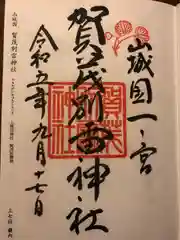 山城国一ノ宮
賀茂別雷神社
令和五年九月十七日
賀茂
神社
山城國 賀茂別雷神社